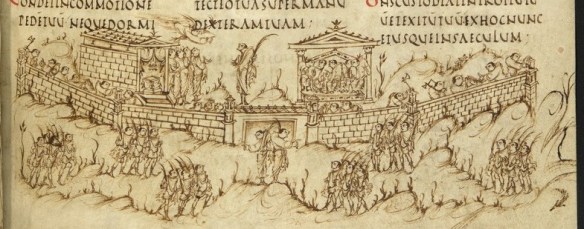 ONDETINCOMMOTIONE
PEDETUU NEQUEDORMI
TECTIOTUASUPERMANU
DEXTERAMTUAM:
DNSCUSTODIATINTROITUTU
UETEXITUTUUEXHOCNUNC
ETUSQUEINSAECULUM: